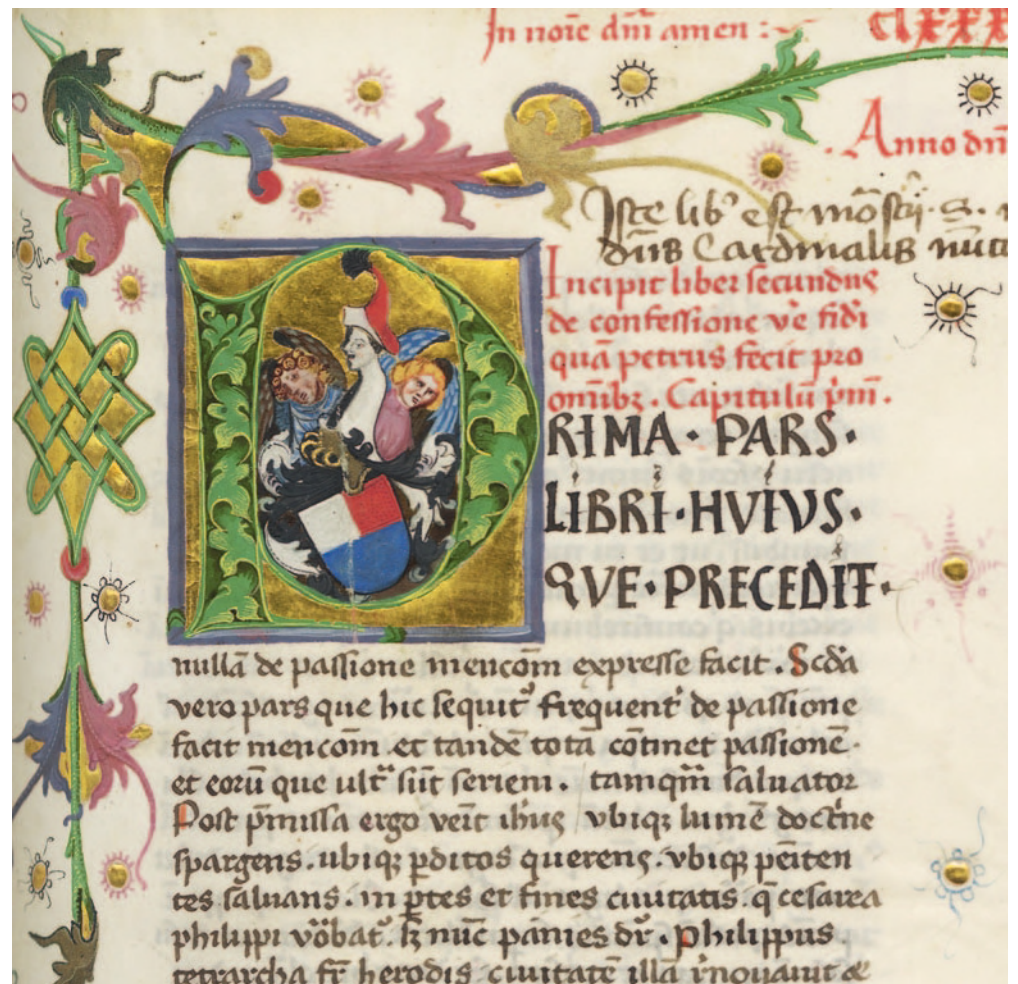 In noīe dn̄i amen : clxxx
Anno dn̄i
Iste lib' est mōstⁱij · S.
dn̄s Cardinalis nūtı
Incipit liber secundus
de confessione ve͛ fidi͛
quā petrus fecit pro
om̄ibꝫ . Capitulū pm̄ .
PRIMA · PARS ·
LIBRI · HVIVS ·
QVE · PRECEDIT ·
nullā de passione mencōm expresse facit . Scd̄a
vero pars que hic sequit᷑ frequent͛ de passione
facit mencōm et tandē totā cōtinet passionē ·
et eorū que ult͛ sūt seriem . tamqm̄ saluator
Post p̄missa ergo veīt ihūs vbiqꝫ lumē doctⁱne
spargens . ubiqꝫ ꝑditos querens . vbiqꝫ peīten
tes saluans . in ꝑtes et fines ciuitatis . q̄ cesarea
philippi vōbat᷑ . sꝫ nūc pānies dr̄ . Philippus
tetrarcha fr̄ herodis ciuitatē illā rⁱnouauit &